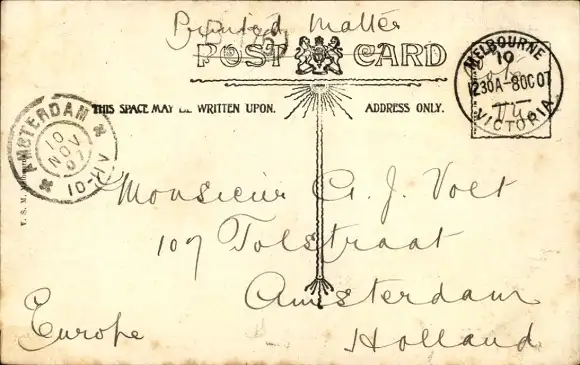 Printed Matter
POST CARD
THIS SPACE MAY BE WRITTEN UPON.
ADDRESS ONLY.
MELBOURNE
10
1230A-8OC07
VICTORIA
AMSTERDAM
10
NOV
07
Monsieur G. J. Volt
107 Tolstraat
Amsterdam
Holland
Europe